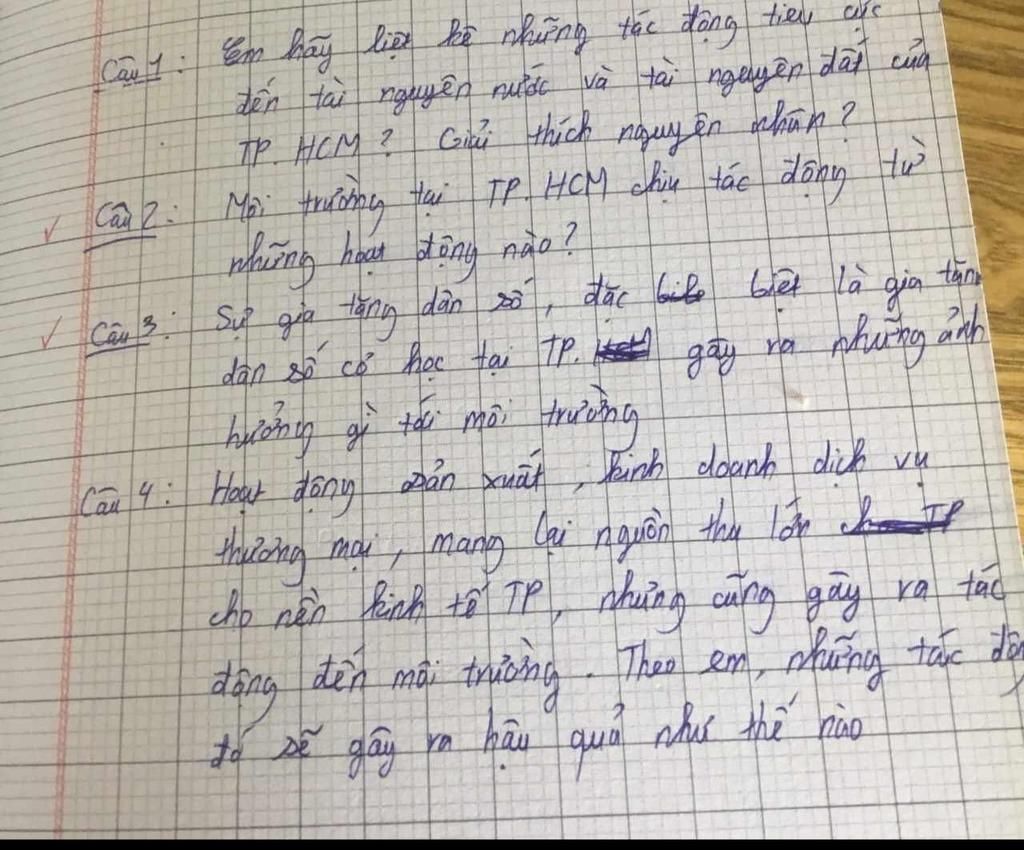 Câu 1: Em hãy liệt kê những tác động tiêu cực
đến tài nguyên nước và tài nguyên đất của
TP. HCM? Giải thích nguyên nhân?
Câu 2: Môi trường tại TP. HCM chịu tác động từ
những hoạt động nào?
Câu 3: Sự gia tăng dân số, đặc biệt là gia tăng
dân số cơ học tại TP. gây ra những ảnh
hưởng gì tới môi trường
Câu 4: Hoạt động sản xuất, kinh doanh dịch vụ
thương mại, mang lại nguồn thu lớn
cho nền kinh tế TP, nhưng cũng gây ra tác
động đến môi trường. Theo em, những tác độn
đó sẽ gây ra hậu quả như thế nào